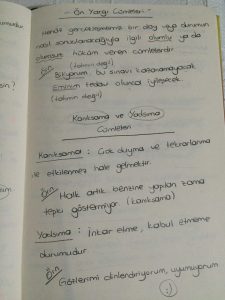 - Ön Yargı Cümleleri -
Henüz gerçekleşmemiş bir olay veya durumun
nasıl sonuçlanacağıyla ilgili olumlu ya da
olumsuz hüküm veren cümlelerdir.
Örn (tahmin değil)
Biliyorum, bu sınavı kazanamayacak
Eminim tedavi olunca iyileşecek.
(tahmin değil)
Kanıksama ve Yadsıma
Cümleleri
Kanıksama : Çok duyma ve tekrarlanma
ile etkilenmez hale gelmektir.
Örn
Halk artık benzine yapılan zama
tepki göstermiyor (kanıksama)
Yadsıma : İnkar etme, kabul etmeme
durumudur.
Örn
Gözlerimi dinlendiriyorum, uyumuyorum
:)